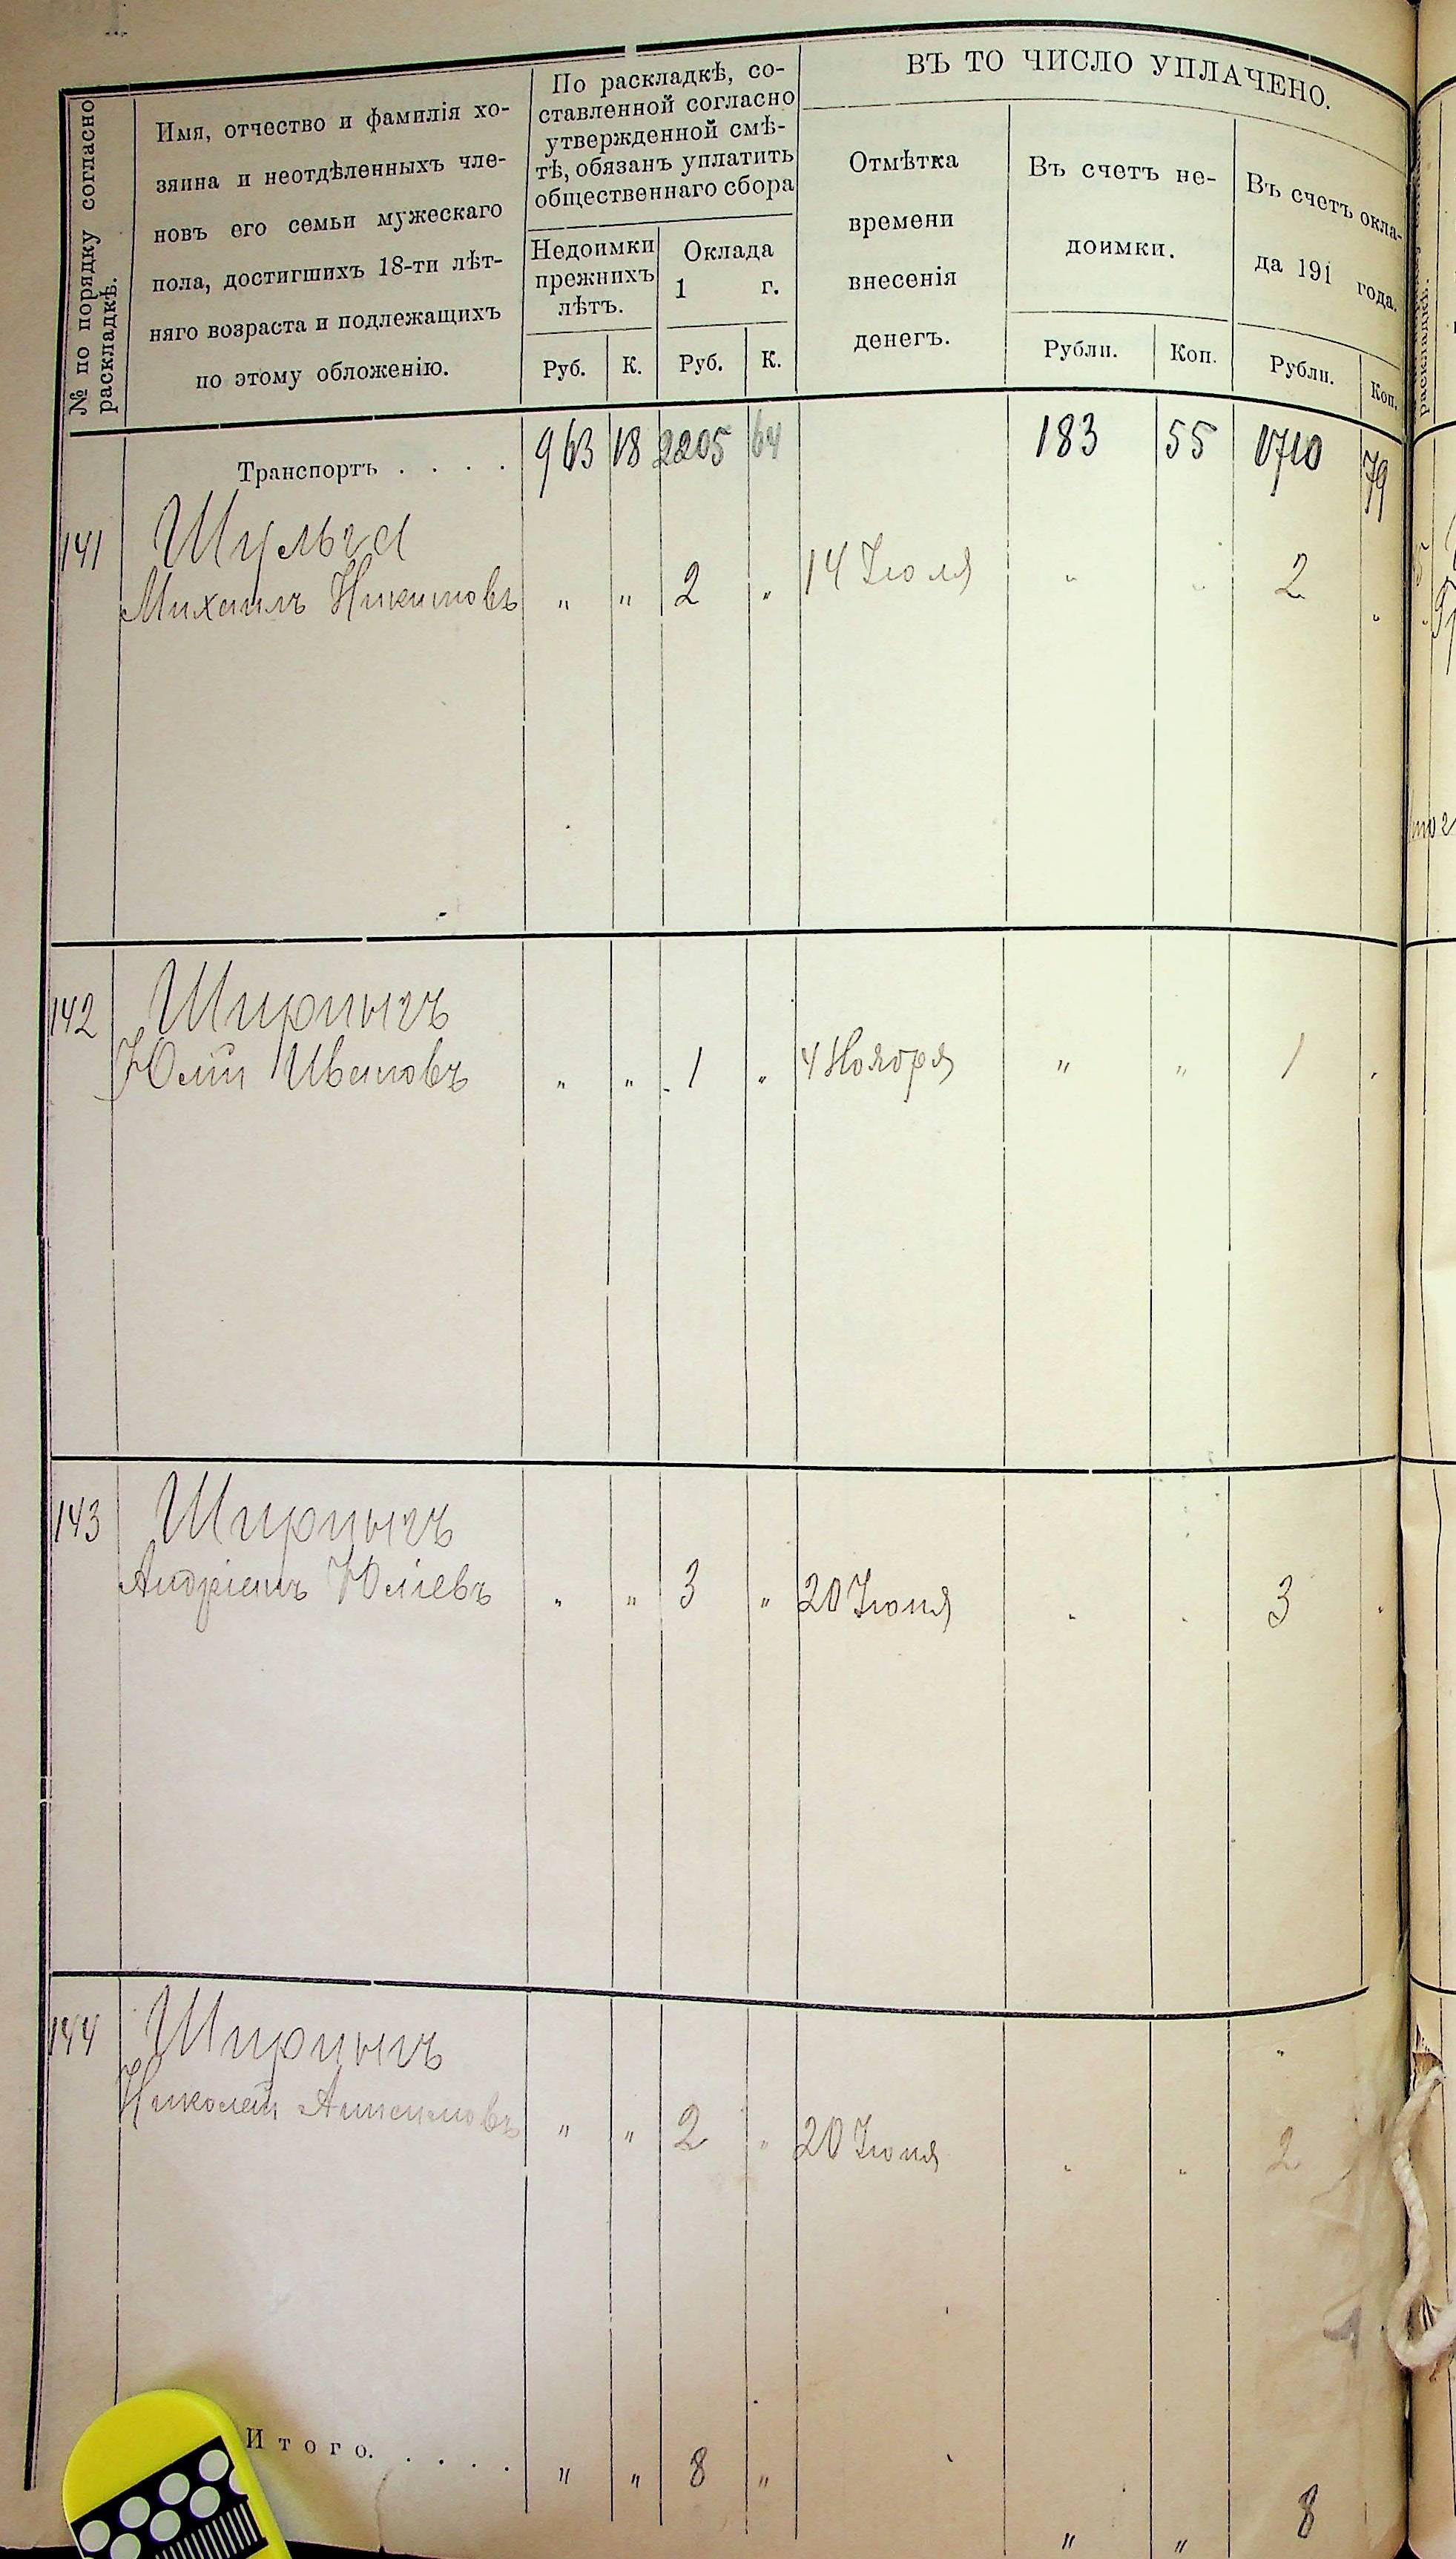 № по порядку согласно
раскладкѣ.
Имя, отчество и фамилія хо-
зяина и неотдѣленныхъ чле-
новъ его семьи мужескаго
пола, достигшихъ 18-ти лѣт-
няго возраста и подлежащихъ
по этому обложенію.
По раскладкѣ, со-
ставленной согласно
утвержденной смѣ-
тѣ, обязанъ уплатить
общественнаго сбора
Недоимки
прежнихъ
лѣтъ.
Руб. К.
Оклада
1 г.
Руб. К.
ВЪ ТО ЧИСЛО УПЛАЧЕНО.
Отмѣтка
времени
внесенія
денегъ.
Въ счетъ не-
доимки.
Рубли. Коп.
Въ счетъ окла-
да 191 года.
Рубли. Коп.
Транспортъ . . . . 963 18 2205 64 183 55 1710 79
141 Шульга
Михаилъ Никитовъ " " 2 " 14 Іюля " " 2 "
142 Ширпычъ
Юлій Ивановъ " " 1 " 4 Ноября " " 1 "
143 Ширпычъ
Андріанъ Юліевъ " " 3 " 20 Іюня " " 3 "
144 Ширпычъ
Николай " " 2 " 20 Іюня " " 2
Итого. . . . . " " 8 " " " 8